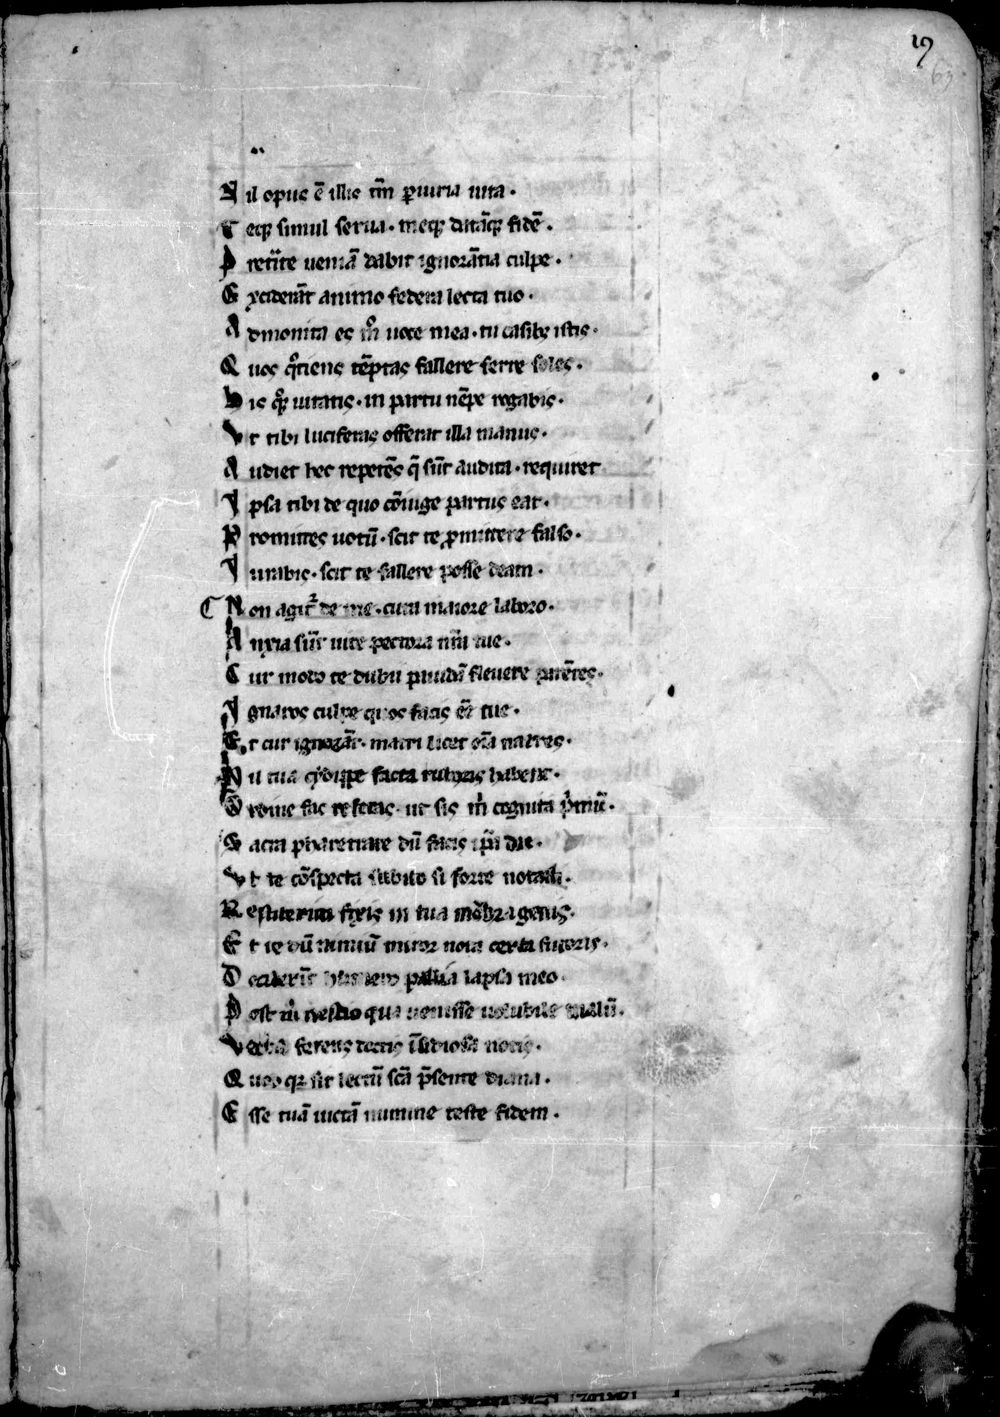 19
69
Nil opus ē illis tm̄ ꝑiuria uita.
Teqꝫ simul serua. meqꝫ datāqꝫ fidē.
Preteͥte ueniā dabit ignorātia culpe.
Exciderāt animo federa lecta tuo.
Admonita es mͦ uoce mea. tu casibꝫ istis.
Quos qͦtiens tēptas fallere ferre soles.
His qͦꝫ uitatis. in partu nēpe rogabis.
Vt tibi luciferas offerat illa manus.
Audiet hec repetēs q̄ sūt audita. requiret
Ipsa tibi de quo cōiuge partus eat.
Promittes uotū. scit te ꝓmittere falso.
Iurabis. scit te fallere posse deam.
Non agit᷑ de me. cura maiore laboro.
Anxia sūt uite pectora nr̄a tue.
Cur modo te dubii pauidi fleuere parētes.
Ignaros culpe quos facis eē tue.
Et cur ignorāt. matri licet oīa narres.
Nil tua cydippe facta ruboris habent.
Ordine fac referas. ut sis mͥ cognita pͥmū.
Sacra pharetrate dū facis ip̄a dee.
Vt te cōspecta subito si forte notasti.
Restiterim fixis in tua mēbra genis.
Et te dū nimiū miror nota certa furoris.
Deciderūt humero pallia lapsa meo.
Post mͦ nescio qua uenisse uolubile malū.
Verba ferens doctis īsidiosa notis.
Quod qꝫ sit lectū scā p̄sente diana.
Esse tuā uictā numine teste fidem.